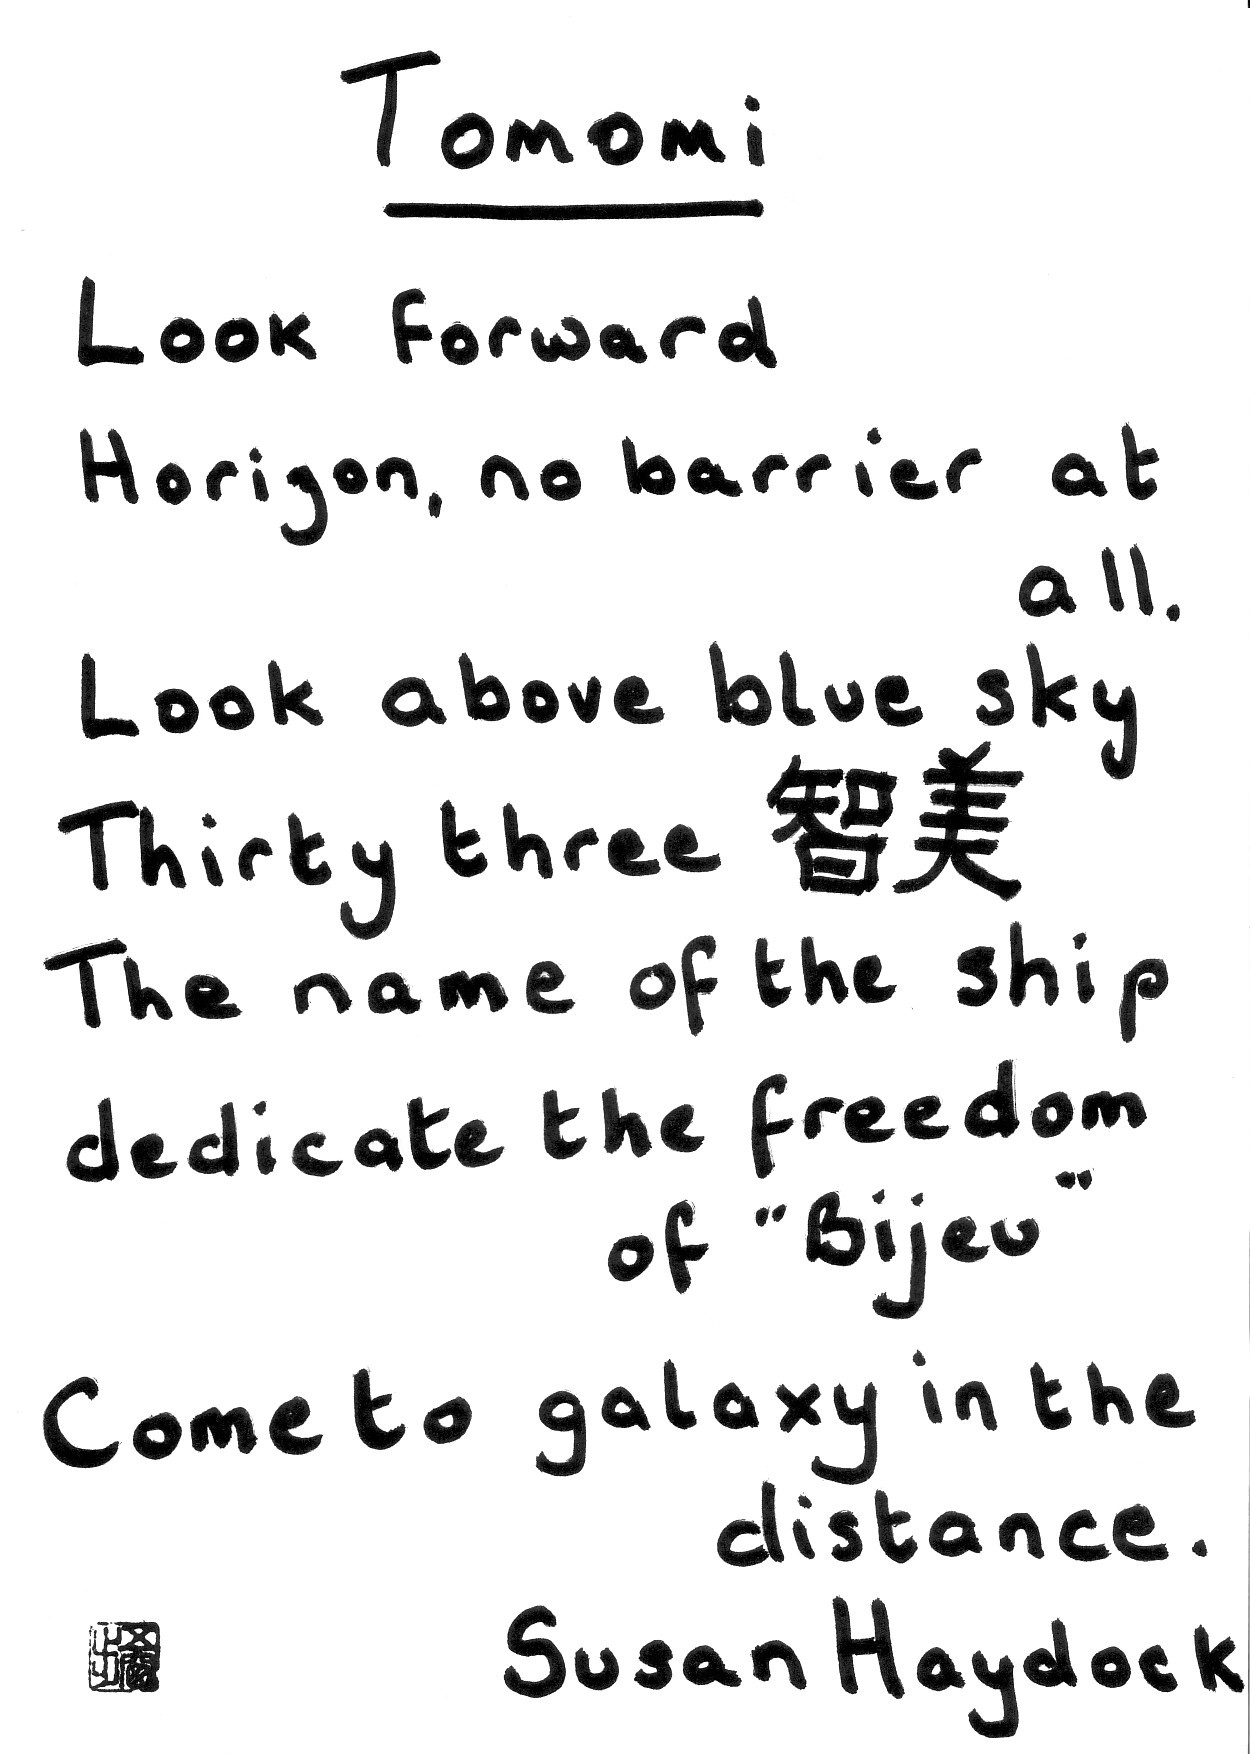 Tomomi
Look forward
Horizon, no barrier at
all.
Look above blue sky
Thirty three 智美
The name of the ship
dedicate the freedom
of "Bijeu"
Come to galaxy in the
distance.
Susan Haydock